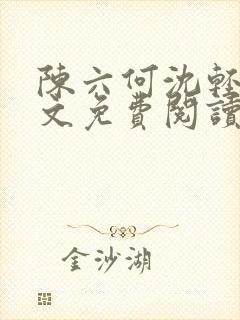 陳六何沈輕
文免費閱讀
金沙湖